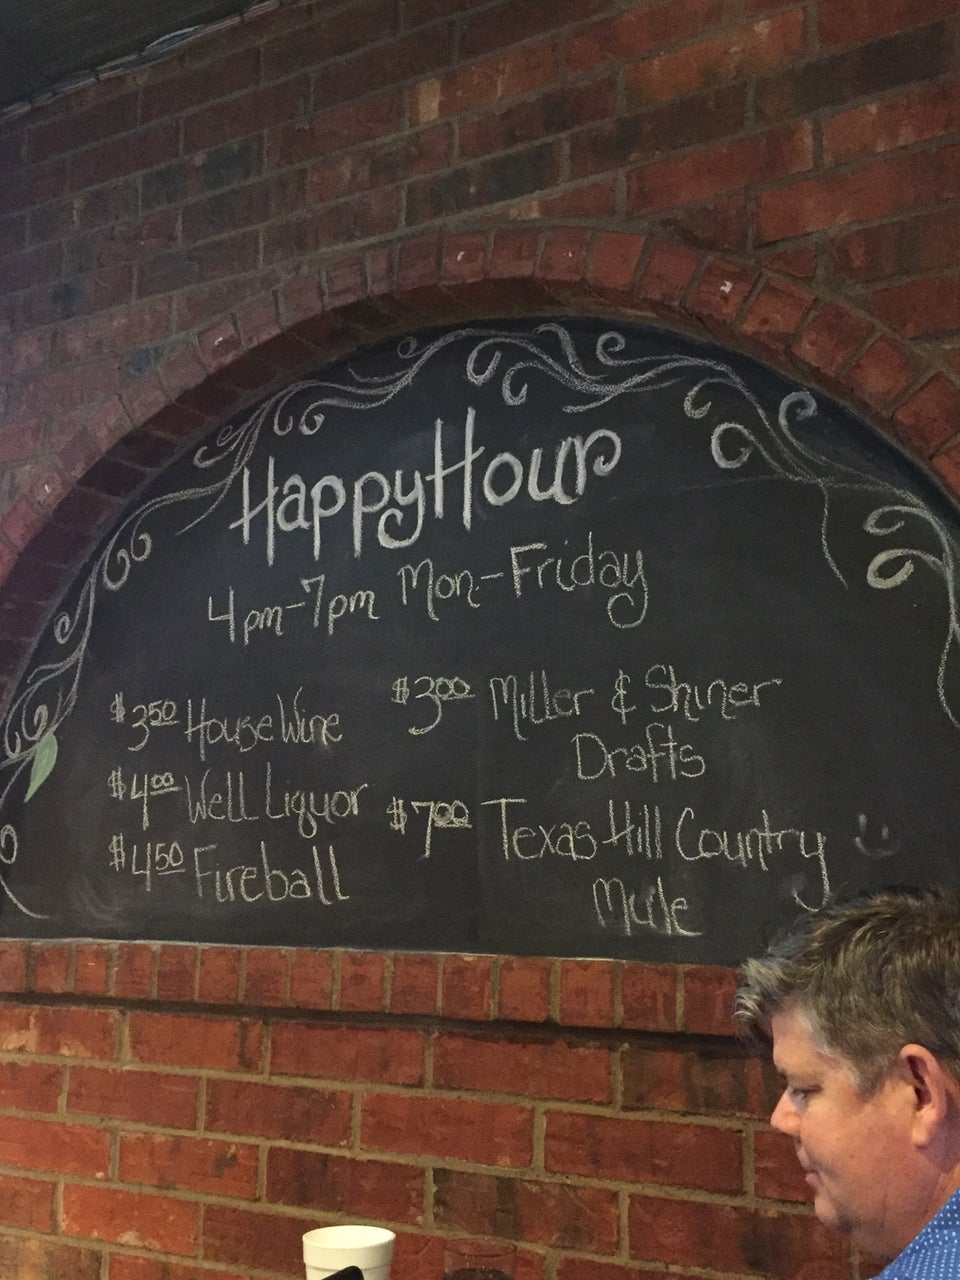 Happy Hour
4pm-7pm Mon-Friday
$3.50 House Wine
$4.00 Well Liquor
$4.50 Fireball
$3.00 Miller & Shiner
Drafts
$7.00 Texas Hill Country
Mule